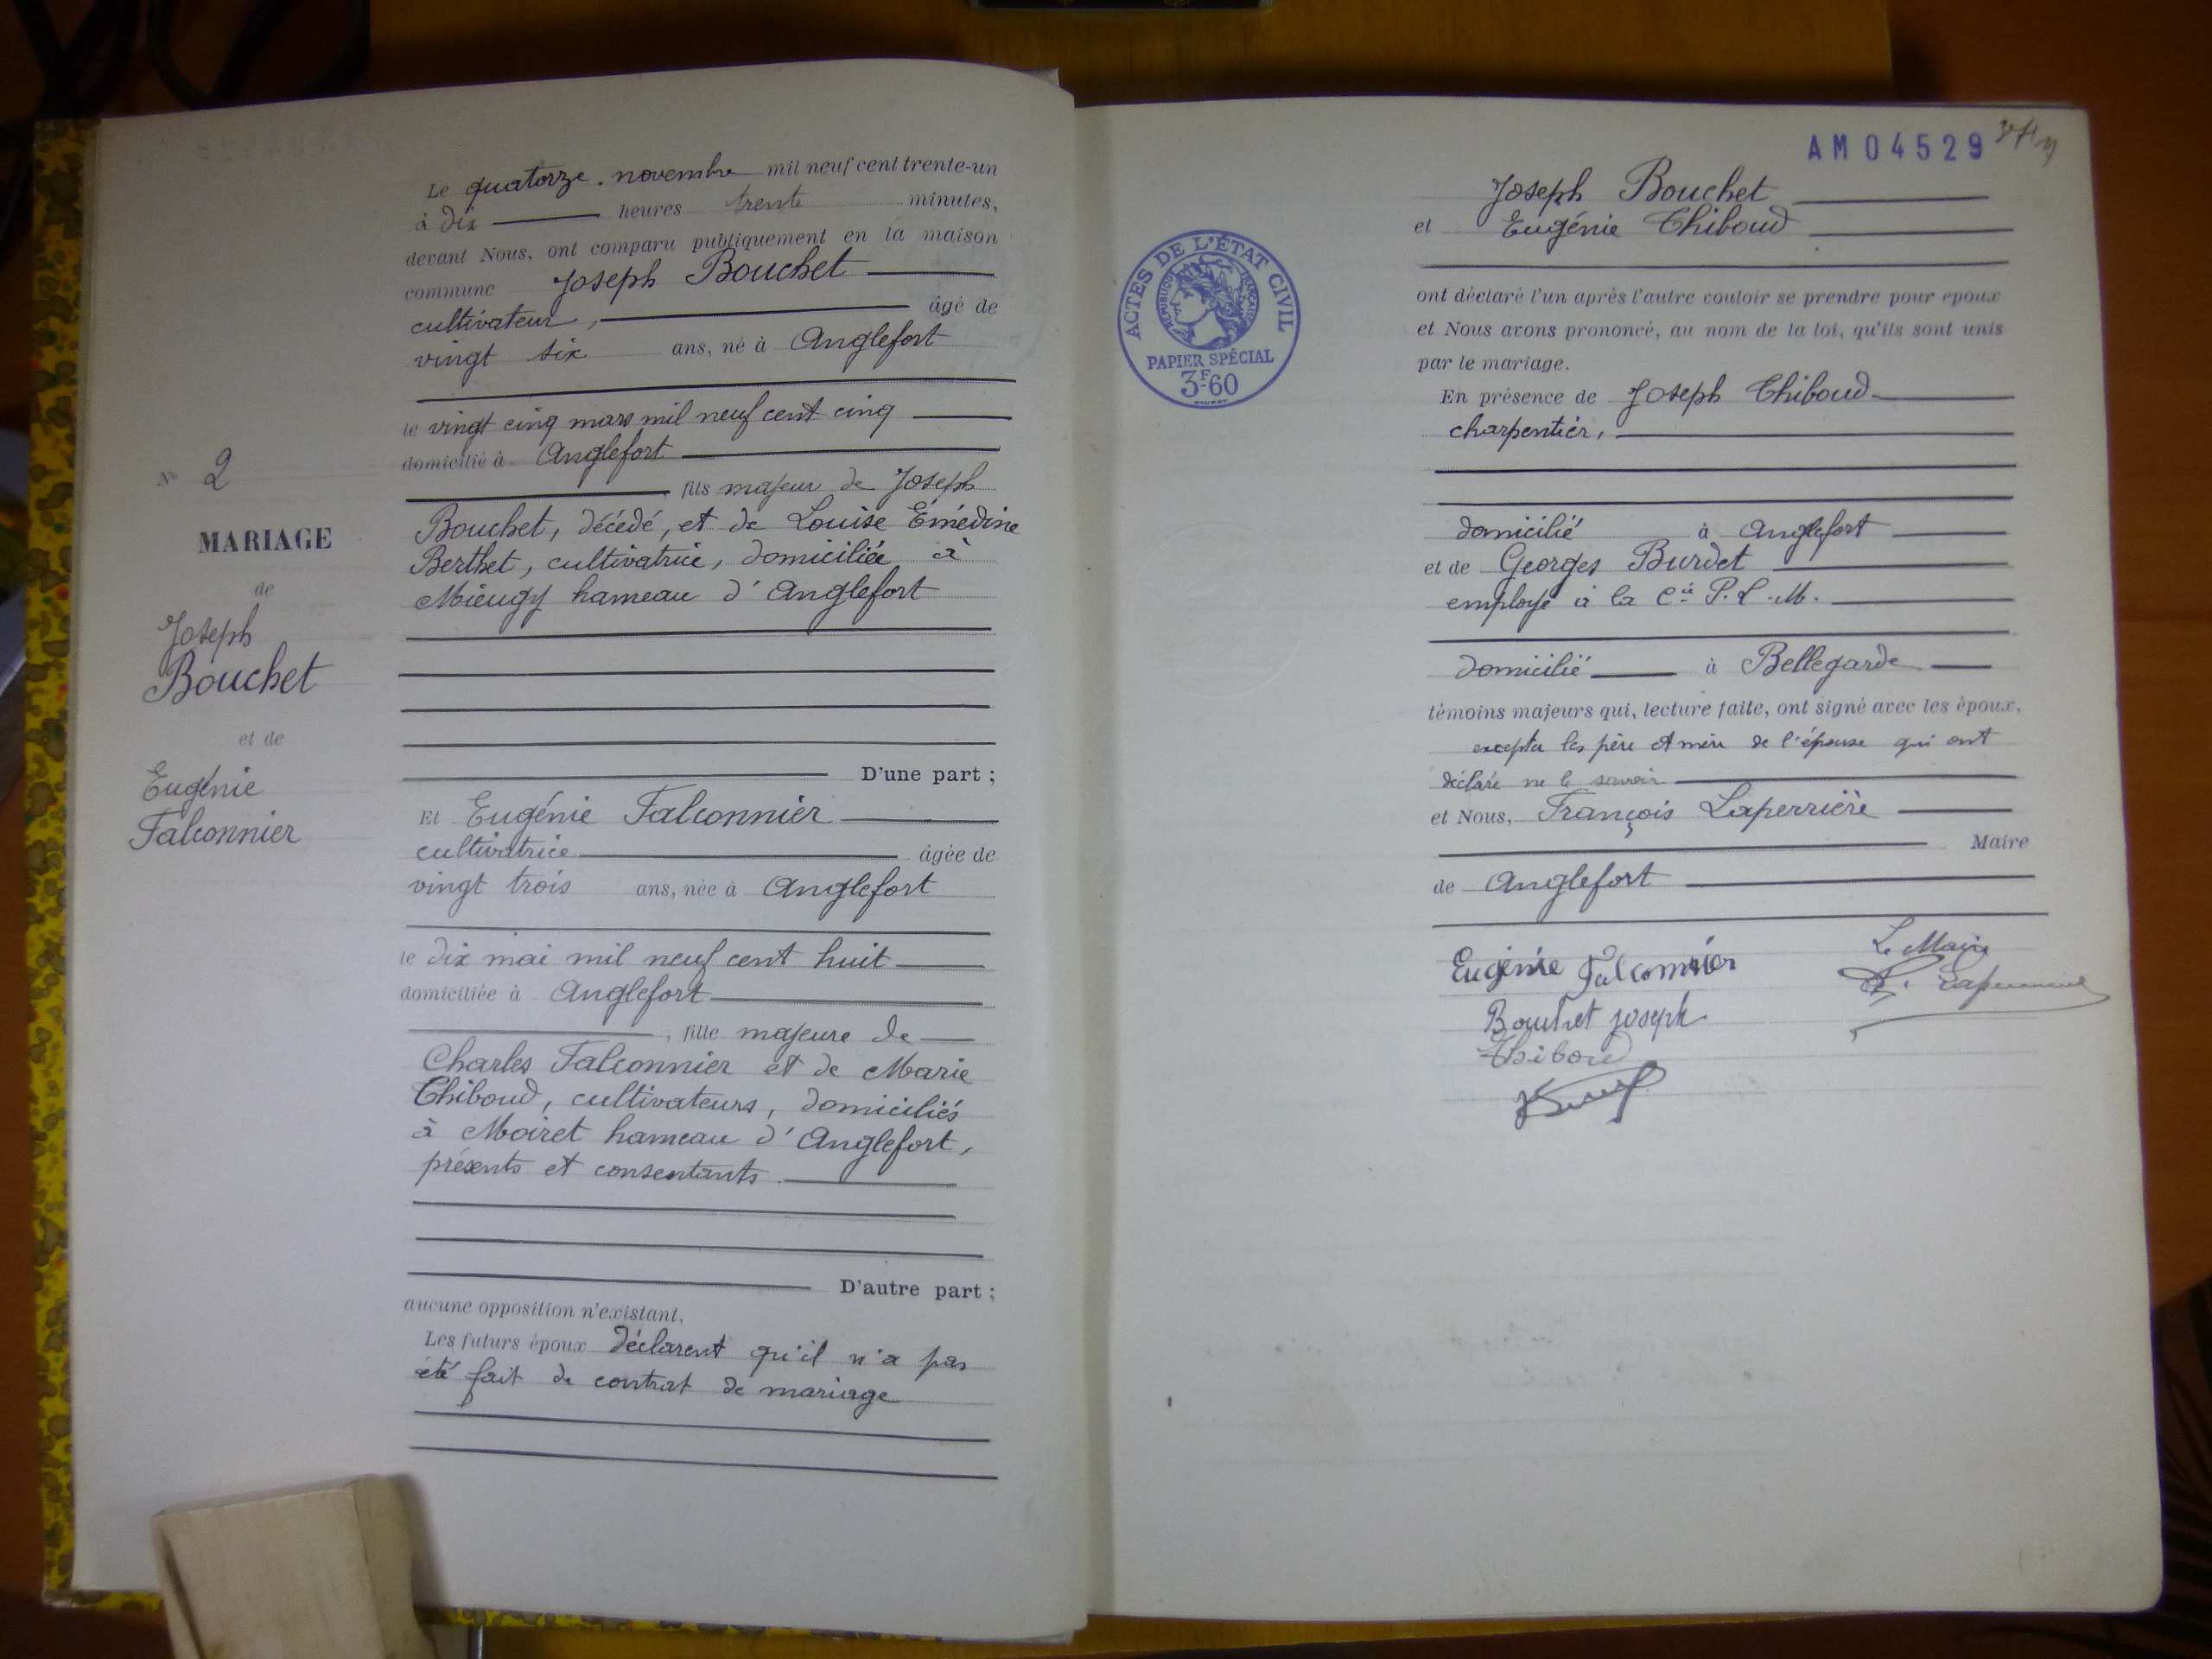 Le quatorze novembre mil neuf cent trente-un
à dix heures trente minutes,
devant Nous, ont comparu publiquement en la maison
commune Joseph Bouchet
cultivateur, âgé de
vingt six ans, né à Anglefort
le vingt cinq mars mil neuf cent cinq
domicilié à Anglefort
fils majeur de Joseph
Bouchet, décédé, et de Louise Émédine
Berthet, cultivatrice, domiciliée à
Mieugy hameau d'Anglefort
D'une part ;
Et Eugénie Falconnier
cultivatrice âgée de
vingt trois ans, née à Anglefort
le dix mai mil neuf cent huit
domiciliée à Anglefort
, fille majeure de
Charles Falconnier et de Marie
Thiboud, cultivateurs, domiciliés
à Moiret hameau d'Anglefort,
présents et consentants.
D'autre part ;
aucune opposition n'existant,
Les futurs époux déclarent qu'il n'a pas
été fait de contrat de mariage
N° 2
MARIAGE
de
Joseph
Bouchet
et de
Eugénie
Falconnier
AM04529
ACTES DE L'ÉTAT CIVIL
RÉPUBLIQUE FRANÇAISE
PAPIER SPÉCIAL
3F60
Joseph Bouchet
et Eugénie Thiboud
ont déclaré l'un après l'autre vouloir se prendre pour époux
et Nous avons prononcé, au nom de la loi, qu'ils sont unis
par le mariage.
En présence de Joseph Thiboud
charpentier,
domicilié à Anglefort
et de Georges Burdet
employé à la Cie P.L.M.
domicilié à Bellegarde
témoins majeurs qui, lecture faite, ont signé avec les époux,
excepté les père et mère de l'épouse qui ont
déclaré ne le savoir
et Nous, François Laperrière
Maire
de Anglefort
Eugénie Falconnier
Bouchet Joseph
Thiboud
Le Maire
F. Laperrière